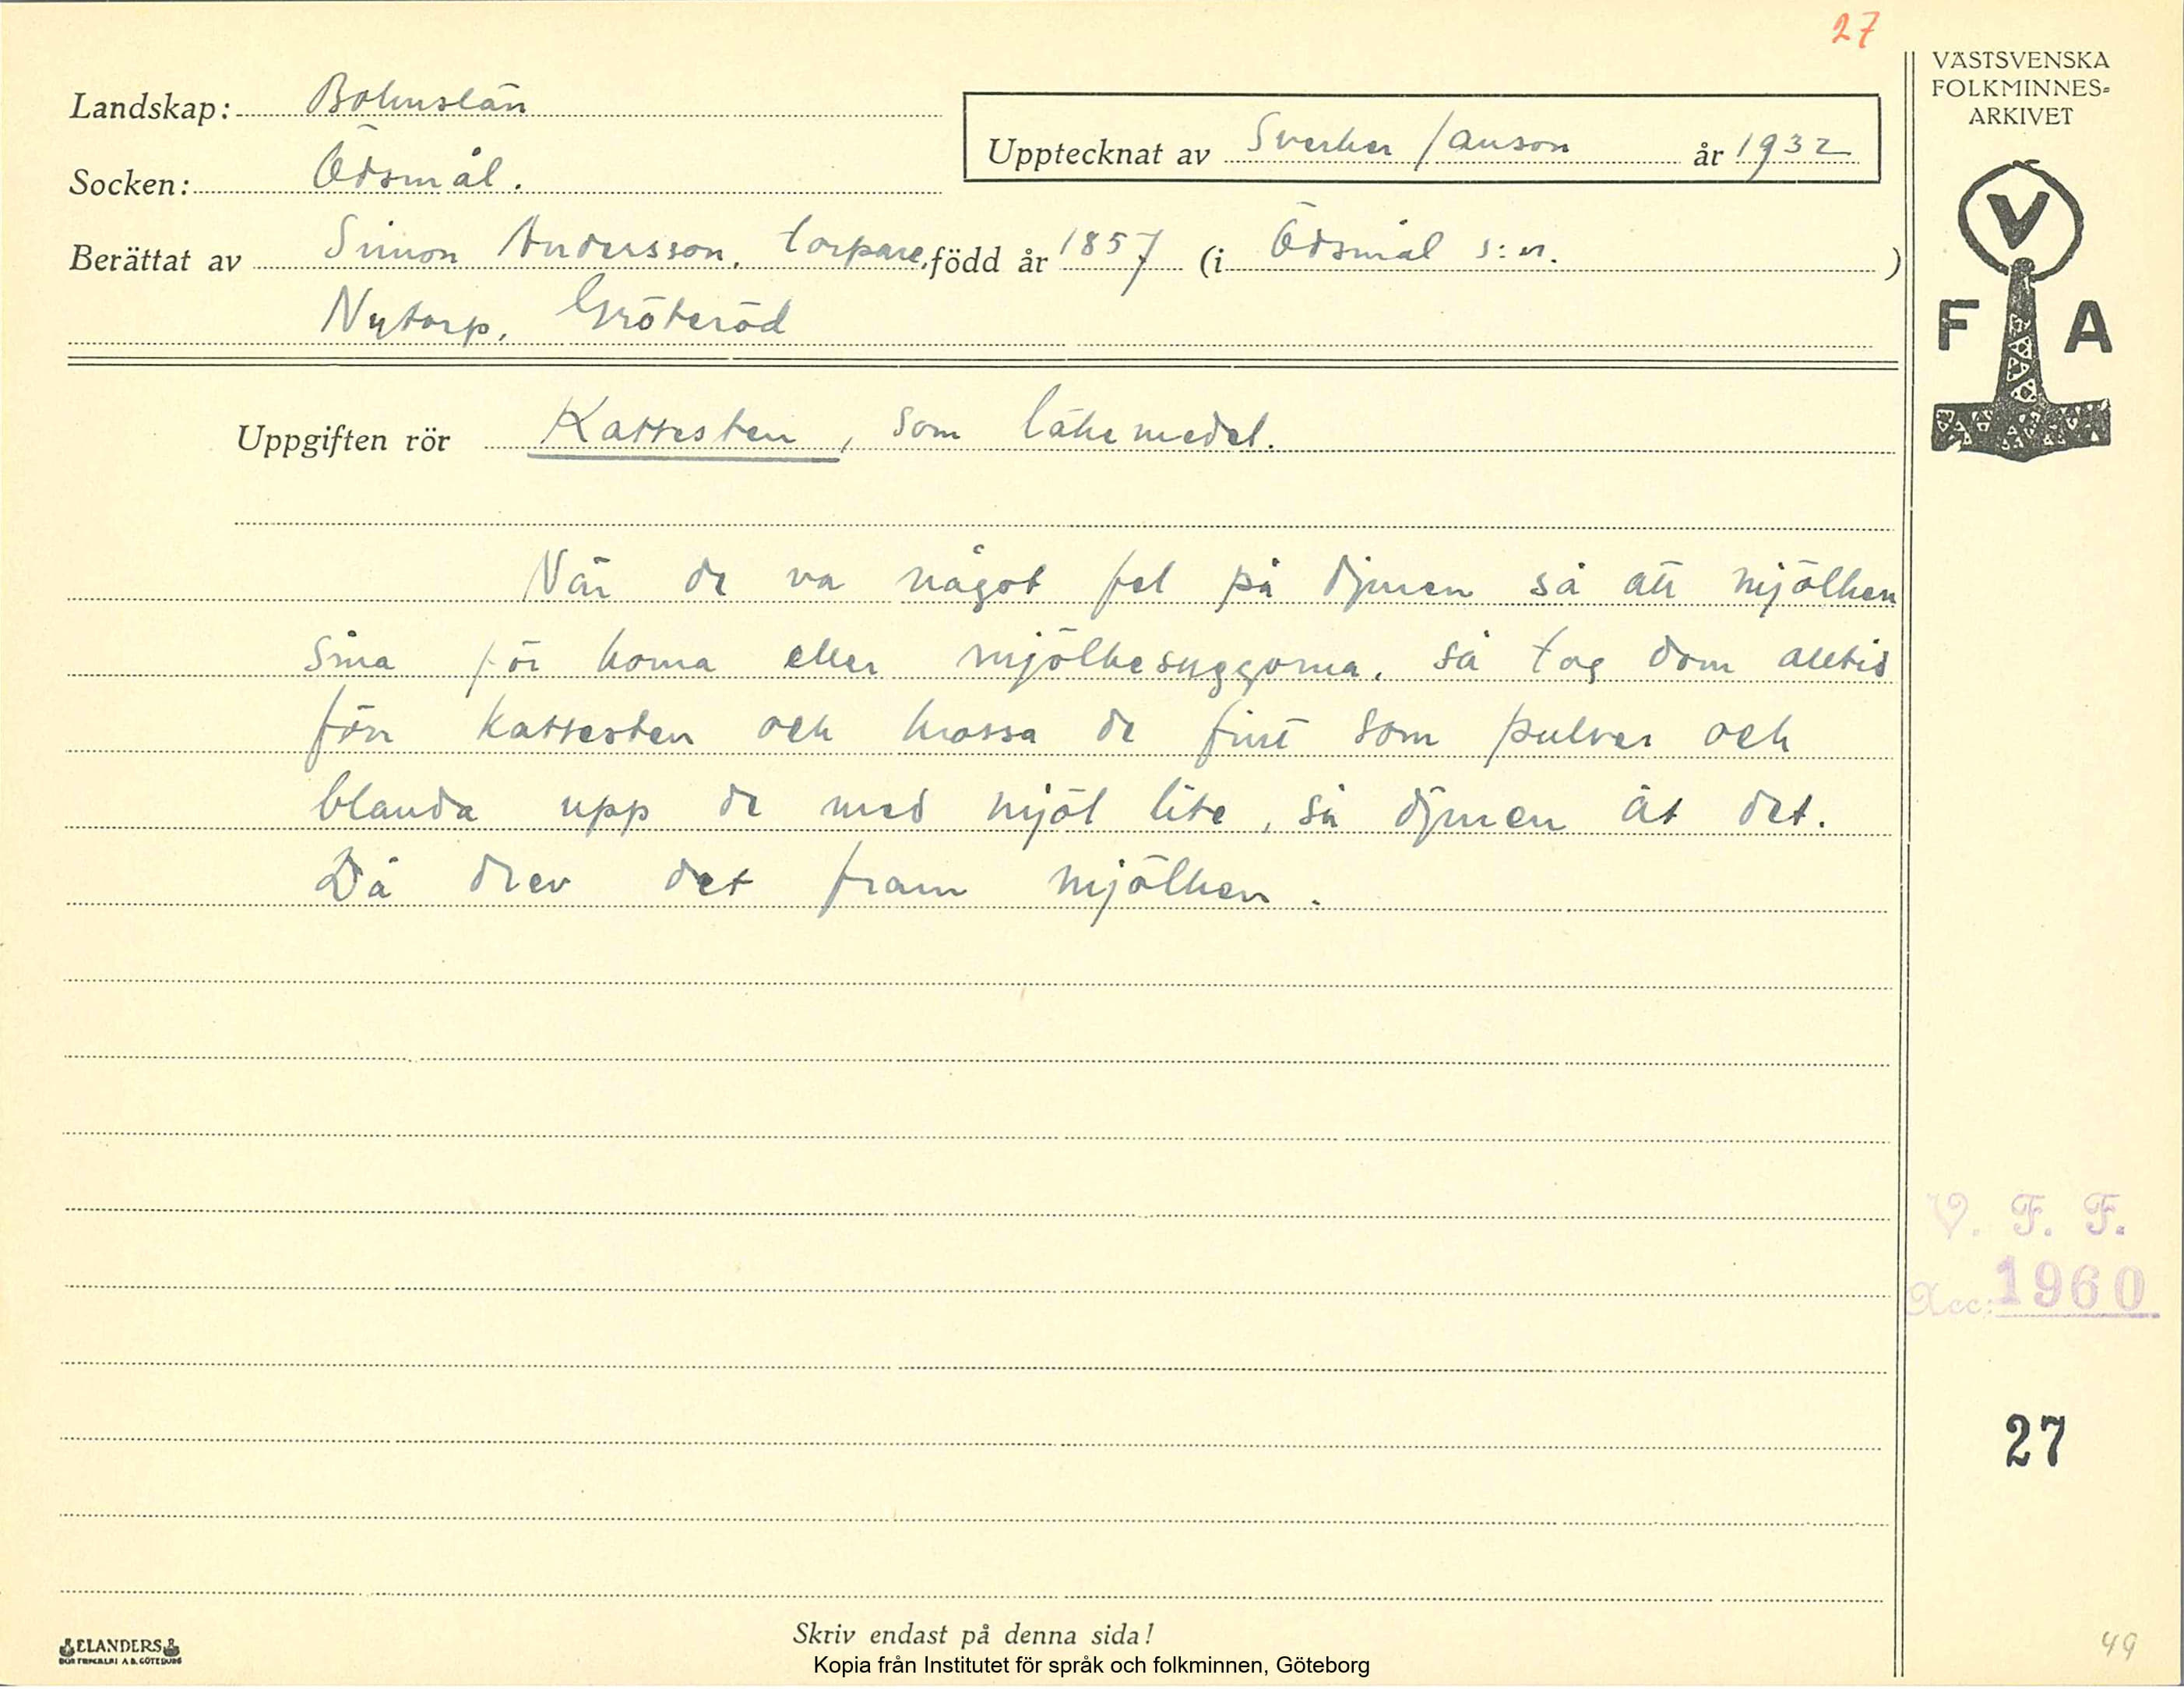 27
VÄSTSVENSKA
FOLKMINNES-
ARKIVET
Landskap: Bohuslän
Upptecknat av Sverker Janson år 1932
Socken: Ödsmål.
Berättat av Simon Andersson, torpare, född år 1857 (i Ödsmål s:n. )
Nytorp, Gröteröd
V
F A
Uppgiften rör Kattesten, som läkemedel.
När de va något fel på djuren så att mjölken
sina för korna eller mjölkesuggorna, så tog dom alltid
förr kattesten och krossa de fint som pulver och
blanda upp de med mjöl lite, så djuren åt det.
Då drev det fram mjölken.
V. F. F.
Acc: 1960
27
Skriv endast på denna sida!
ELANDERS
Kopia från Institutet för språk och folkminnen, Göteborg
49